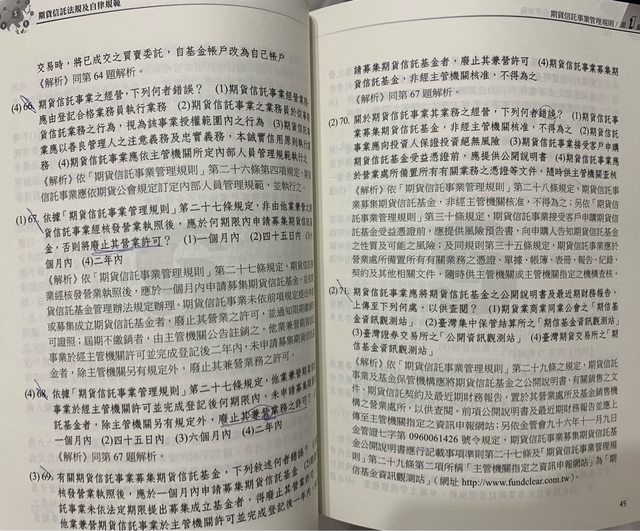 期貨信託法規及自律規範
交易時，將已成交之買賣委託，自基金帳戶改為自己帳戶
《解析》同第 64 題解析。
(4) 66. 期貨信託事業之經營，下列何者錯誤？ (1)期貨信託事業經營業務
應由登記合格業務員執行業務 (2)期貨信託事業之業務員於從事
信託業務之行為，視為該事業授權範圍內之行為 (3)期貨信託事
業應以善良管理人之注意義務及忠實義務，本誠實信用原則執行業
務 (4)期貨信託事業應依主管機關所定內部人員管理規範執行之
《解析》依「期貨信託事業管理規則」第二十六條第四項規定，期貨
信託事業應依期貨公會規定訂定內部人員管理規範，並執行之。
(1) 67. 依據「期貨信託事業管理規則」第二十七條規定，非由他業兼營之期
貨信託事業經核發營業執照後，應於何期限內申請募集期貨信託基
金，否則將廢止其營業許可？ (1)一個月內 (2)四十五日內
(4)二年內
《解析》依「期貨信託事業管理規則」第二十七條規定，期貨信託事
業經核發營業執照後，應於一個月內申請募集期貨信託基金，
管理辦法規定辦理。期貨信託事業未依前項規定提出
或募集成立期貨信託基金者，廢止其營業之許可，並通知限期繳
可證照；屆期不繳銷者，由主管機關公告註銷之。他業兼營期貨信託
事業於經主管機關許可並完成登記後二年內，未申請募集期貨信託基
金者，除主管機關另有規定外，廢止其兼營業務之許可。
(4) 68. 依據「期貨信託事業管理規則」第二十七條規定，他業兼營期貨信託
事業於經主管機關許可並完成登記後何期限內，未申請募集期貨
金者，除主管機關另有規定外，廢止其兼營業務之許可？
一個月內 (2)四十五日內 (3)六個月內 (4)二年內
《解析》同第 67 題解析。
(3) 69. 有關期貨信託事業募集期貨信託基金，下列敘述何者錯誤？
核發營業執照後，應於一個月內申請募集期貨信託基金
託事業未依法定期限提出募集或成立基金者，得廢止其營業
他業兼營期貨信託事業於主管機關許可並完成登記後一年內，
期貨信託事業管理規則/第
請募集期貨信託基金者，廢止其兼營許可 (4)期貨信託事業募集期
貨信託基金，非經主管機關核准，不得為之
《解析》同第 67 題解析。
(2) 70. 關於期貨信託事業其業務之經營，下列何者錯誤？ (1)期貨信託事
業募集期貨信託基金，非經主管機關核准，不得為之 (2)期貨信託
事業應向投資人保證投資絕無風險 (3)期貨信託事業接受客戶申購
期貨信託基金受益憑證前，應提供公開說明書 (4)期貨信託事業應
於營業處所備置所有有關業務之憑證等文件，隨時供主管機關查核
《解析》依「期貨信託事業管理規則」第二十八條規定，期貨信託事
業募集期貨信託基金，非經主管機關核准，不得為之；另依「期貨信
託事業管理規則」第三十條規定，期貨信託事業接受客戶申購期貨信
託基金受益憑證前，應提供風險預告書，向申購人告知期貨信託基金
之性質及可能之風險；及同規則第三十五條規定，期貨信託事業應於
營業處所備置所有有關業務之憑證、單據、帳簿、表冊、報告、紀錄、
契約及其他相關文件，隨時供主管機關或主管機關指定之機構查核。
(2) 71. 期貨信託事業應將期貨信託基金之公開說明書及最近期財務報告，
上傳至下列何處，以供查閱？ (1)期貨業商業同業公會之「期信基
金資訊觀測站」 (2)臺灣集中保管結算所之「期信基金資訊觀測站」
(3)臺灣證券交易所之「公開資訊觀測站」 (4)臺灣期貨交易所之「期
信基金資訊觀測站」
《解析》依「期貨信託事業管理規則」第二十九條之規定，期貨信託
事業及基金保管機構應將期貨信託基金之公開說明書、有關銷售之文
件、期貨信託契約及最近期財務報告，置於其營業處所及基金銷售機
構之營業處所，以供查閱。前項公開說明書及最近期財務報告並應上
傳至主管機關指定之資訊申報網站；另依金管會九十六年十一月九日
金管證七字第 0960061426 號令規定，期貨信託事業募集期貨信託基
金公開說明書應行記載事項準則第二十七條及「期貨信託事業管理規
則」第二十九條第二項所稱「主管機關指定之資訊申報網站」為「期
信基金資訊觀測站」（網址 http://www.fundclear.com.tw）。
45